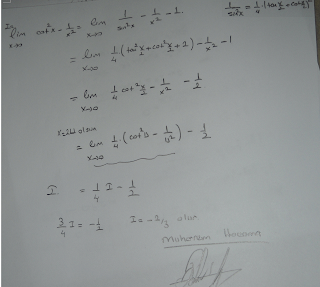 lim x→0 cot²x - 1/x² = lim x→0 1/sin²x - 1/x² - 1.
1/sin²x = 1/4 (tan x/2 + cot
= lim x→0 1/4 (tan² x/2 + cot² x/2 + 2) - 1/x² - 1
= lim x→0 1/4 cot² x/2 - 1/x² - 1/2
x=2u olsun
= lim x→0 1/4 (cot²u - 1/u²) - 1/2
I = 1/4 I - 1/2
3/4 I = -1/2 I = -2/3 olur
Moharam